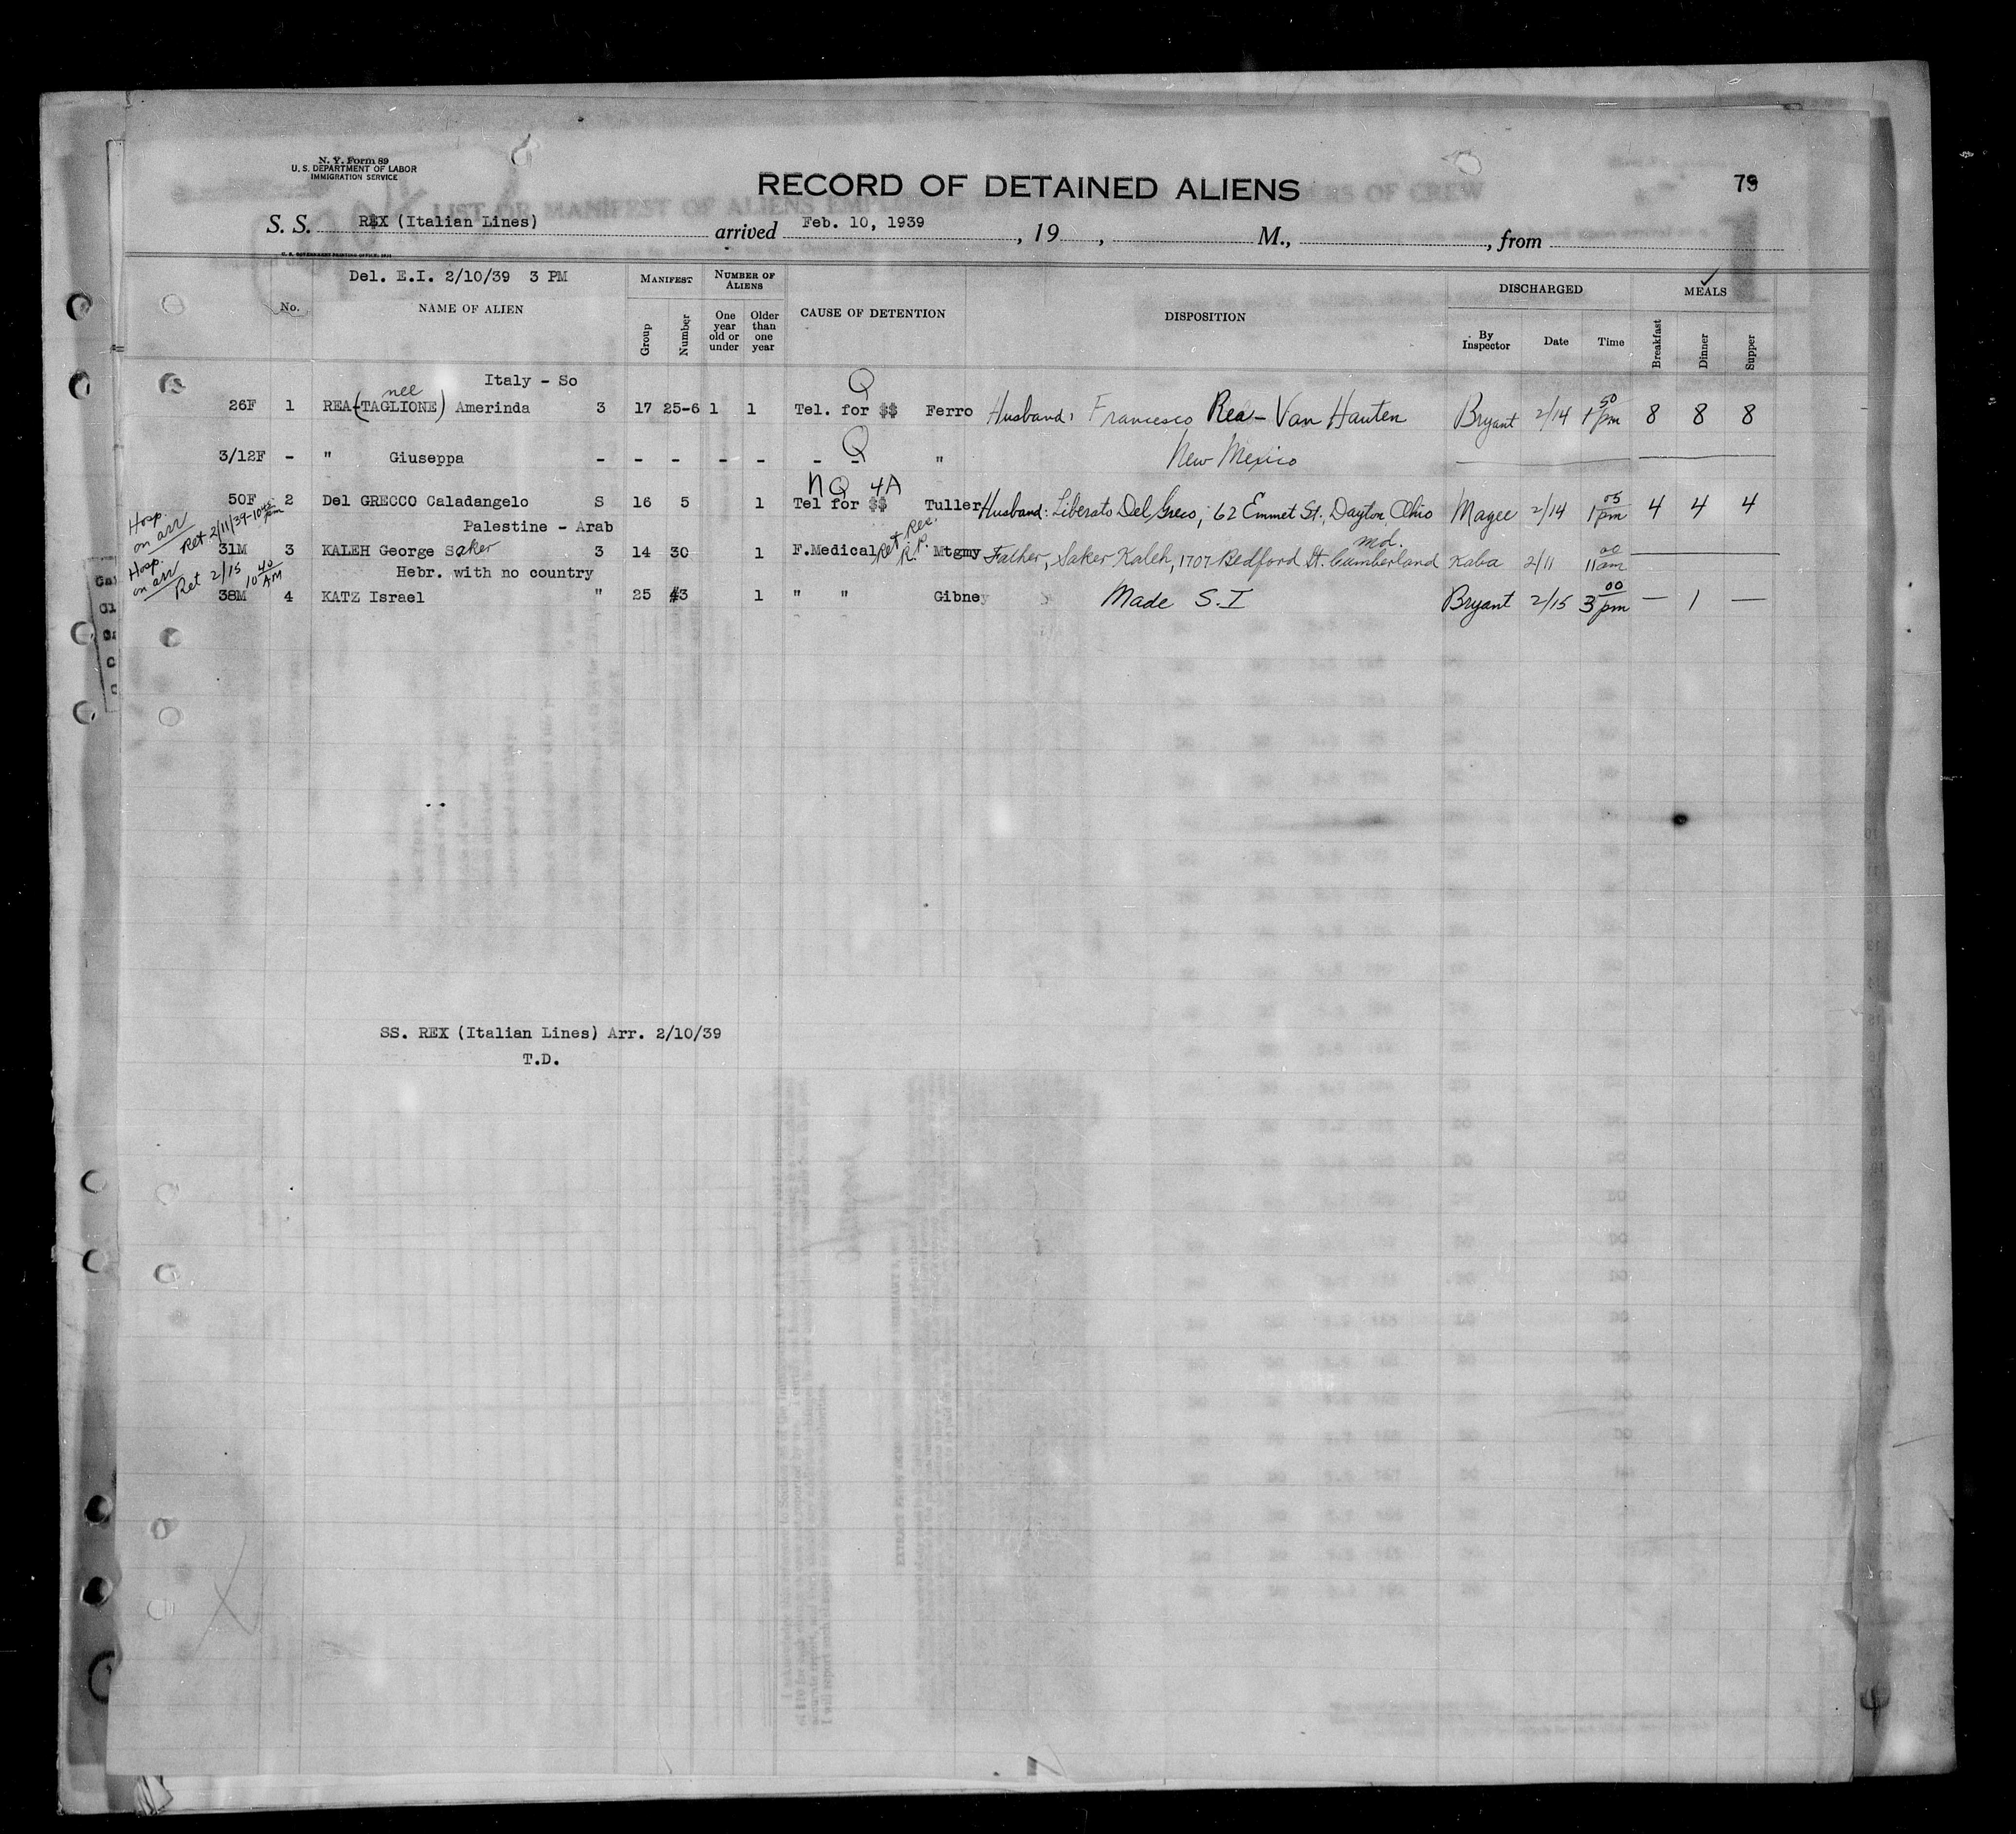 N. Y. Form 89
U. S. DEPARTMENT OF LABOR
IMMIGRATION SERVICE
RECORD OF DETAINED ALIENS
79
S. S. REX (Italian Lines) arrived Feb. 10, 1939 , 19 , M., , from
Del. E.I. 2/10/39 3 PM
No. NAME OF ALIEN MANIFEST Group Number NUMBER OF ALIENS One year old or under Older than one year CAUSE OF DETENTION DISPOSITION DISCHARGED By Inspector Date Time MEALS Breakfast Dinner Supper
Italy - So Q
26F 1 REA (nee TAGLIONE) Amerinda 3 17 25-6 1 1 Tel. for $$ Ferro Husband: Francesco Rea - Van Hauten Bryant 2/14 1 50 pm 8 8 8
3/12F - " Giuseppa - - - - - - Q - " New Mexico
NQ 4A
50F 2 Del GRECCO Caladangelo S 16 5 1 Tel for $$ Tuller Husband: Liberato Del Greco; 62 Emmet St., Dayton, Ohio Magee 2/14 1 05 pm 4 4 4
Hosp. on arr Ret 2/11/39-10 45 am
Palestine - Arab
31M 3 KALEH George Saker 3 14 30 1 F.Medical Ret Rec. R.P. Mtgmy Father, Saker Kaleh, 1707 Bedford St. Cumberland Md. Kaba 2/11 11 00 am
Hosp. on arr Ret 2/15 10 40 AM
Hebr. with no country
38M 4 KATZ Israel " 25 43 1 " " Gibney Made S.I Bryant 2/15 3 00 pm — 1 —
SS. REX (Italian Lines) Arr. 2/10/39
T.D.